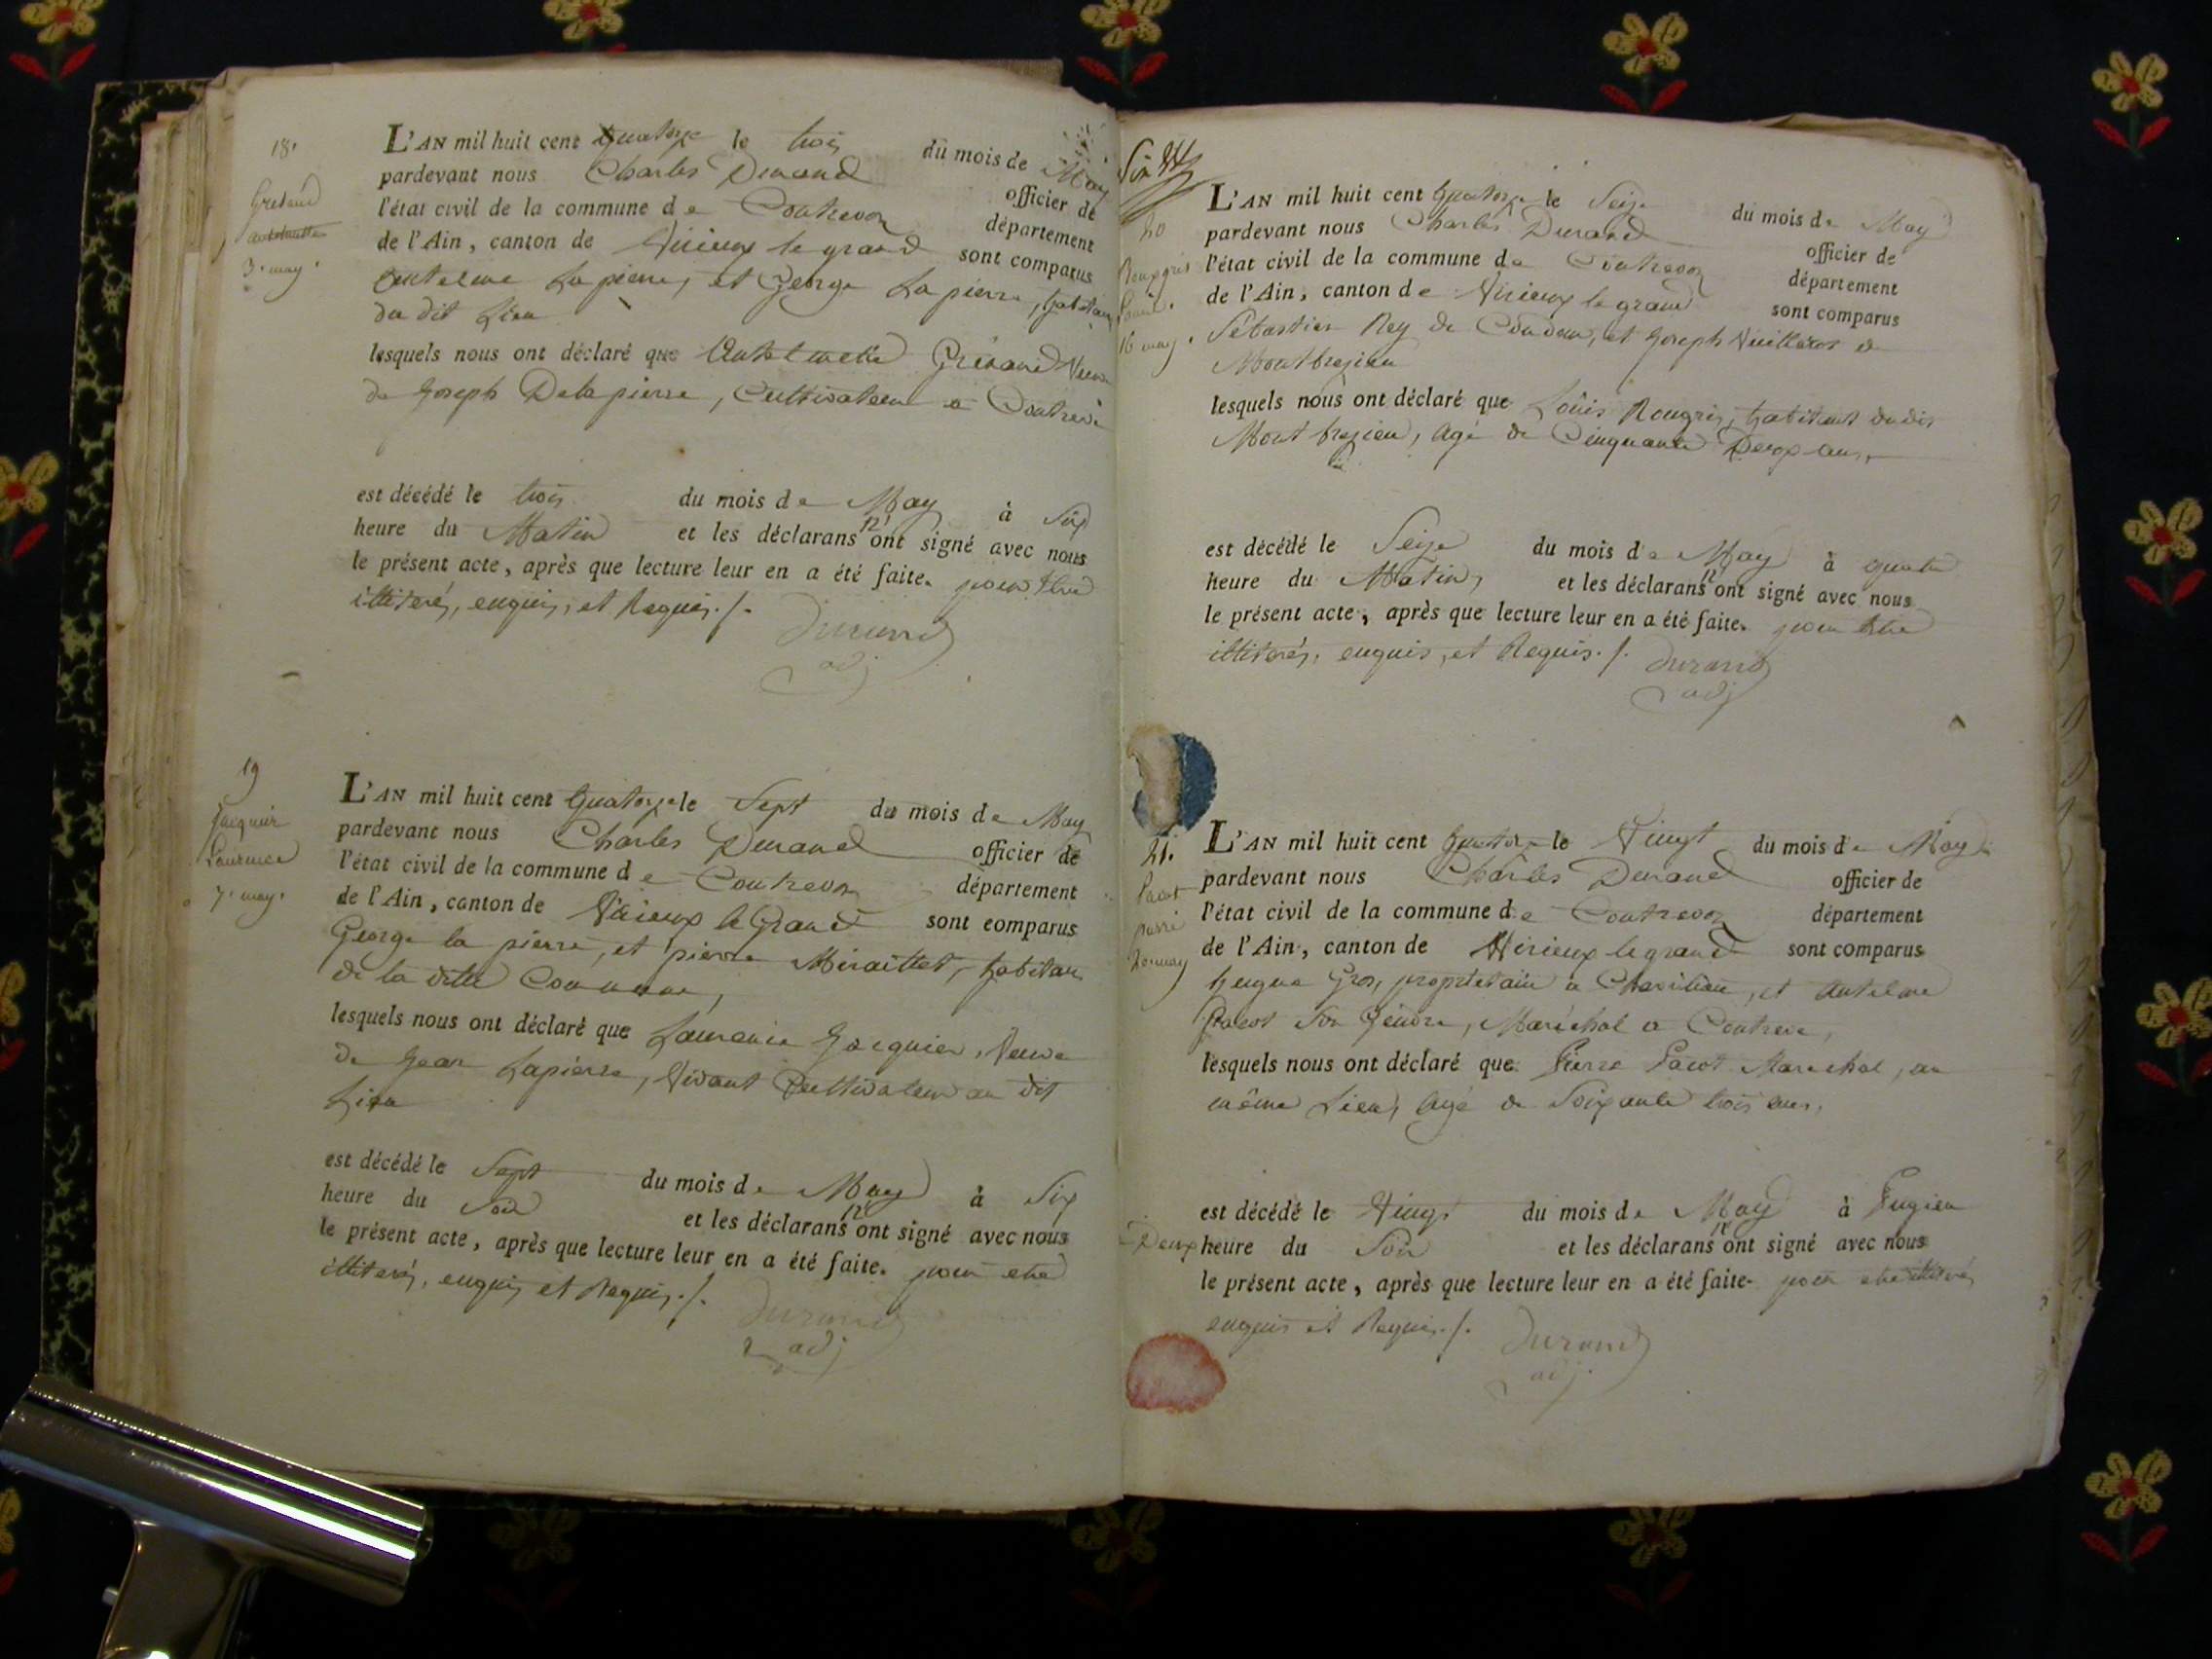 18.
Gretaud
antelmette
3. may.
L'AN mil huit cent quatorze le trois du mois de May
pardevant nous Charles Durand officier de
l'état civil de la commune de Contrevoz département
de l'Ain, canton de Virieux le grand sont comparus
antelme Lapierre, et George Lapierre, habitans
du dit Lieu
lesquels nous ont déclaré que Antelmette Veuve
de Joseph Delapierre, Cultivateur a Contrevoz
est décédé le trois du mois de May à Six
heure du Matin et les déclarans n' ont signé avec nous
le présent acte, après que lecture leur en a été faite. pour être
illiterés, enquis, et Requis./.
Durand
adj
19
Jacquier
Laurence
7. may.
L'AN mil huit cent quatorze le Sept du mois de May
pardevant nous Charles Durand officier de
l'état civil de la commune de Contrevoz département
de l'Ain, canton de Virieux le Grand sont comparus
George la pierre, et pierre Miraillet, habitans
de la ditte Commune,
lesquels nous ont déclaré que Laurence Jacquier, Veuve
de Jean Lapierre, Vivant Cultivateur au dit
Lieu
est décédé le Sept du mois de May à Six
heure du Soir et les déclarans n' ont signé avec nous
le présent acte, après que lecture leur en a été faite. pour etre
illiterés, enquis et Requis./.
Durand
adj
20
Louis.
16 may.
L'AN mil huit cent quatorze le Seize du mois de May
pardevant nous Charles Durand officier de
l'état civil de la commune de Contrevoz département
de l'Ain, canton de Virieux le grand sont comparus
Sébastien Rey de Condon, et Joseph Vuillerot de
Montbrezieu
lesquels nous ont déclaré que Loüis Rougris, habitant dudit
Montbrezieu, agé de Cinquante Deux ans,
est décédé le Seize du mois de May à quatre
heure du Matin, et les déclarans n' ont signé avec nous
le présent acte, après que lecture leur en a été faite. pour être
illiterés, enquis, et Requis./.
Durand
adj
21.
Pacot
pierre
20. may
L'AN mil huit cent quatorze le Vingt du mois de May
pardevant nous Charles Durand officier de
l'état civil de la commune de Contrevoz département
de l'Ain, canton de Virieux le grand sont comparus
hugue Gros, propriétaire a et antelme
Pacot Son Gendre, Maréchal a Contrevoz,
lesquels nous ont déclaré que Pierre Pacot Marechal, au
même Lieu, agé de Soixante trois ans,
est décédé le Vingt du mois de May à Pugieu
Deux heure du Soir et les déclarans n' ont signé avec nous
le présent acte, après que lecture leur en a été faite. pour etre illiterés,
enquis et Requis./.
Durand
adj.